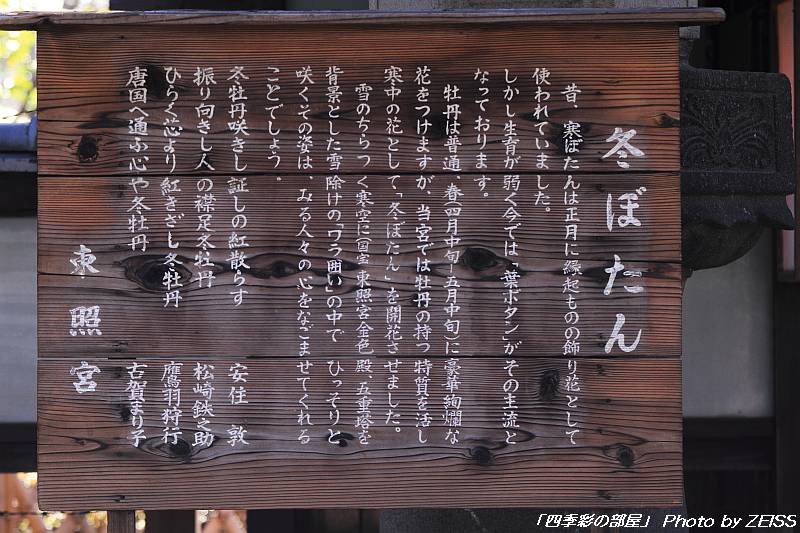 冬ぼたん
昔、寒ぼたんは正月に縁起ものの飾り花として
使われていました。
しかし生育が弱く今では、「葉ボタン」がその主流と
なっております。
牡丹は普通、春(四月中旬-五月中旬)に豪華絢爛な
花をつけますが、当宮では牡丹の持つ特質を活し
寒中の花として、「冬ぼたん」を開花させました。
雪のちらつく寒空に国宝東照宮金色殿、五重塔を
背景とした雪除けの「ワラ囲い」の中でひっそりと
咲くその姿は、みる人々の心をなごませてくれる
ことでしょう。
冬牡丹咲きし証しの紅散らす 安住敦
振り向きし人の襟足冬牡丹 松崎鉄之助
ひらく芯より紅きざし冬牡丹 鷹羽狩行
唐国へ通ふ心や冬牡丹 古賀まり子
東照宮
「四季彩の部屋」 Photo by ZEISS